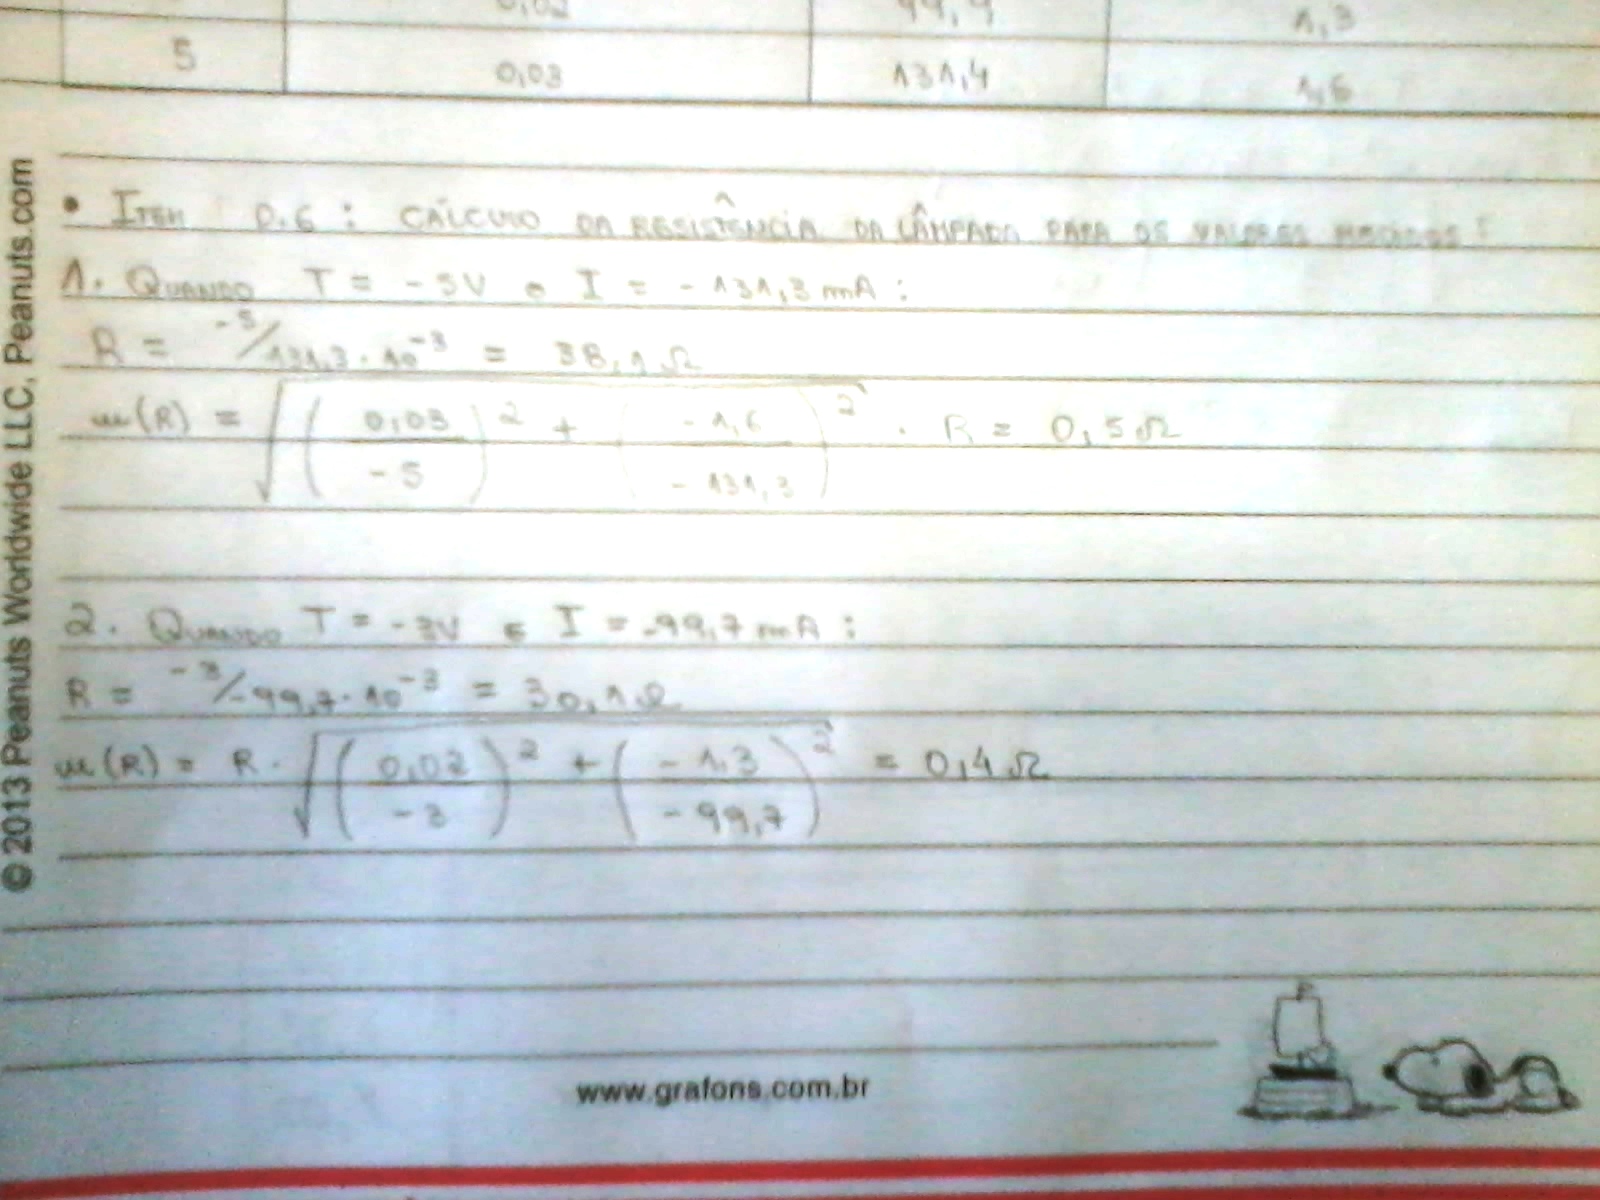 0,02 99,4 1,3
5 0,03 131,4 1,6
• ITEM D.6 : CÁLCULO DA RESISTÊNCIA DA LÂMPADA PARA OS VALORES MEDIDOS:
1. QUANDO T = -5V e I = -131,3 mA :
R = -5/131,3 · 10^-3 = 38,1 Ω
u(R) = √((0,03/-5)^2 + (-1,6/-131,3)^2) · R = 0,5 Ω
2. QUANDO T = -3V E I = -99,7 mA :
R = -3/-99,7 · 10^-3 = 30,1 Ω
u(R) = R · √((0,02/-3)^2 + (-1,3/-99,7)^2) = 0,4 Ω
www.grafons.com.br
© 2013 Peanuts Worldwide LLC, Peanuts.com